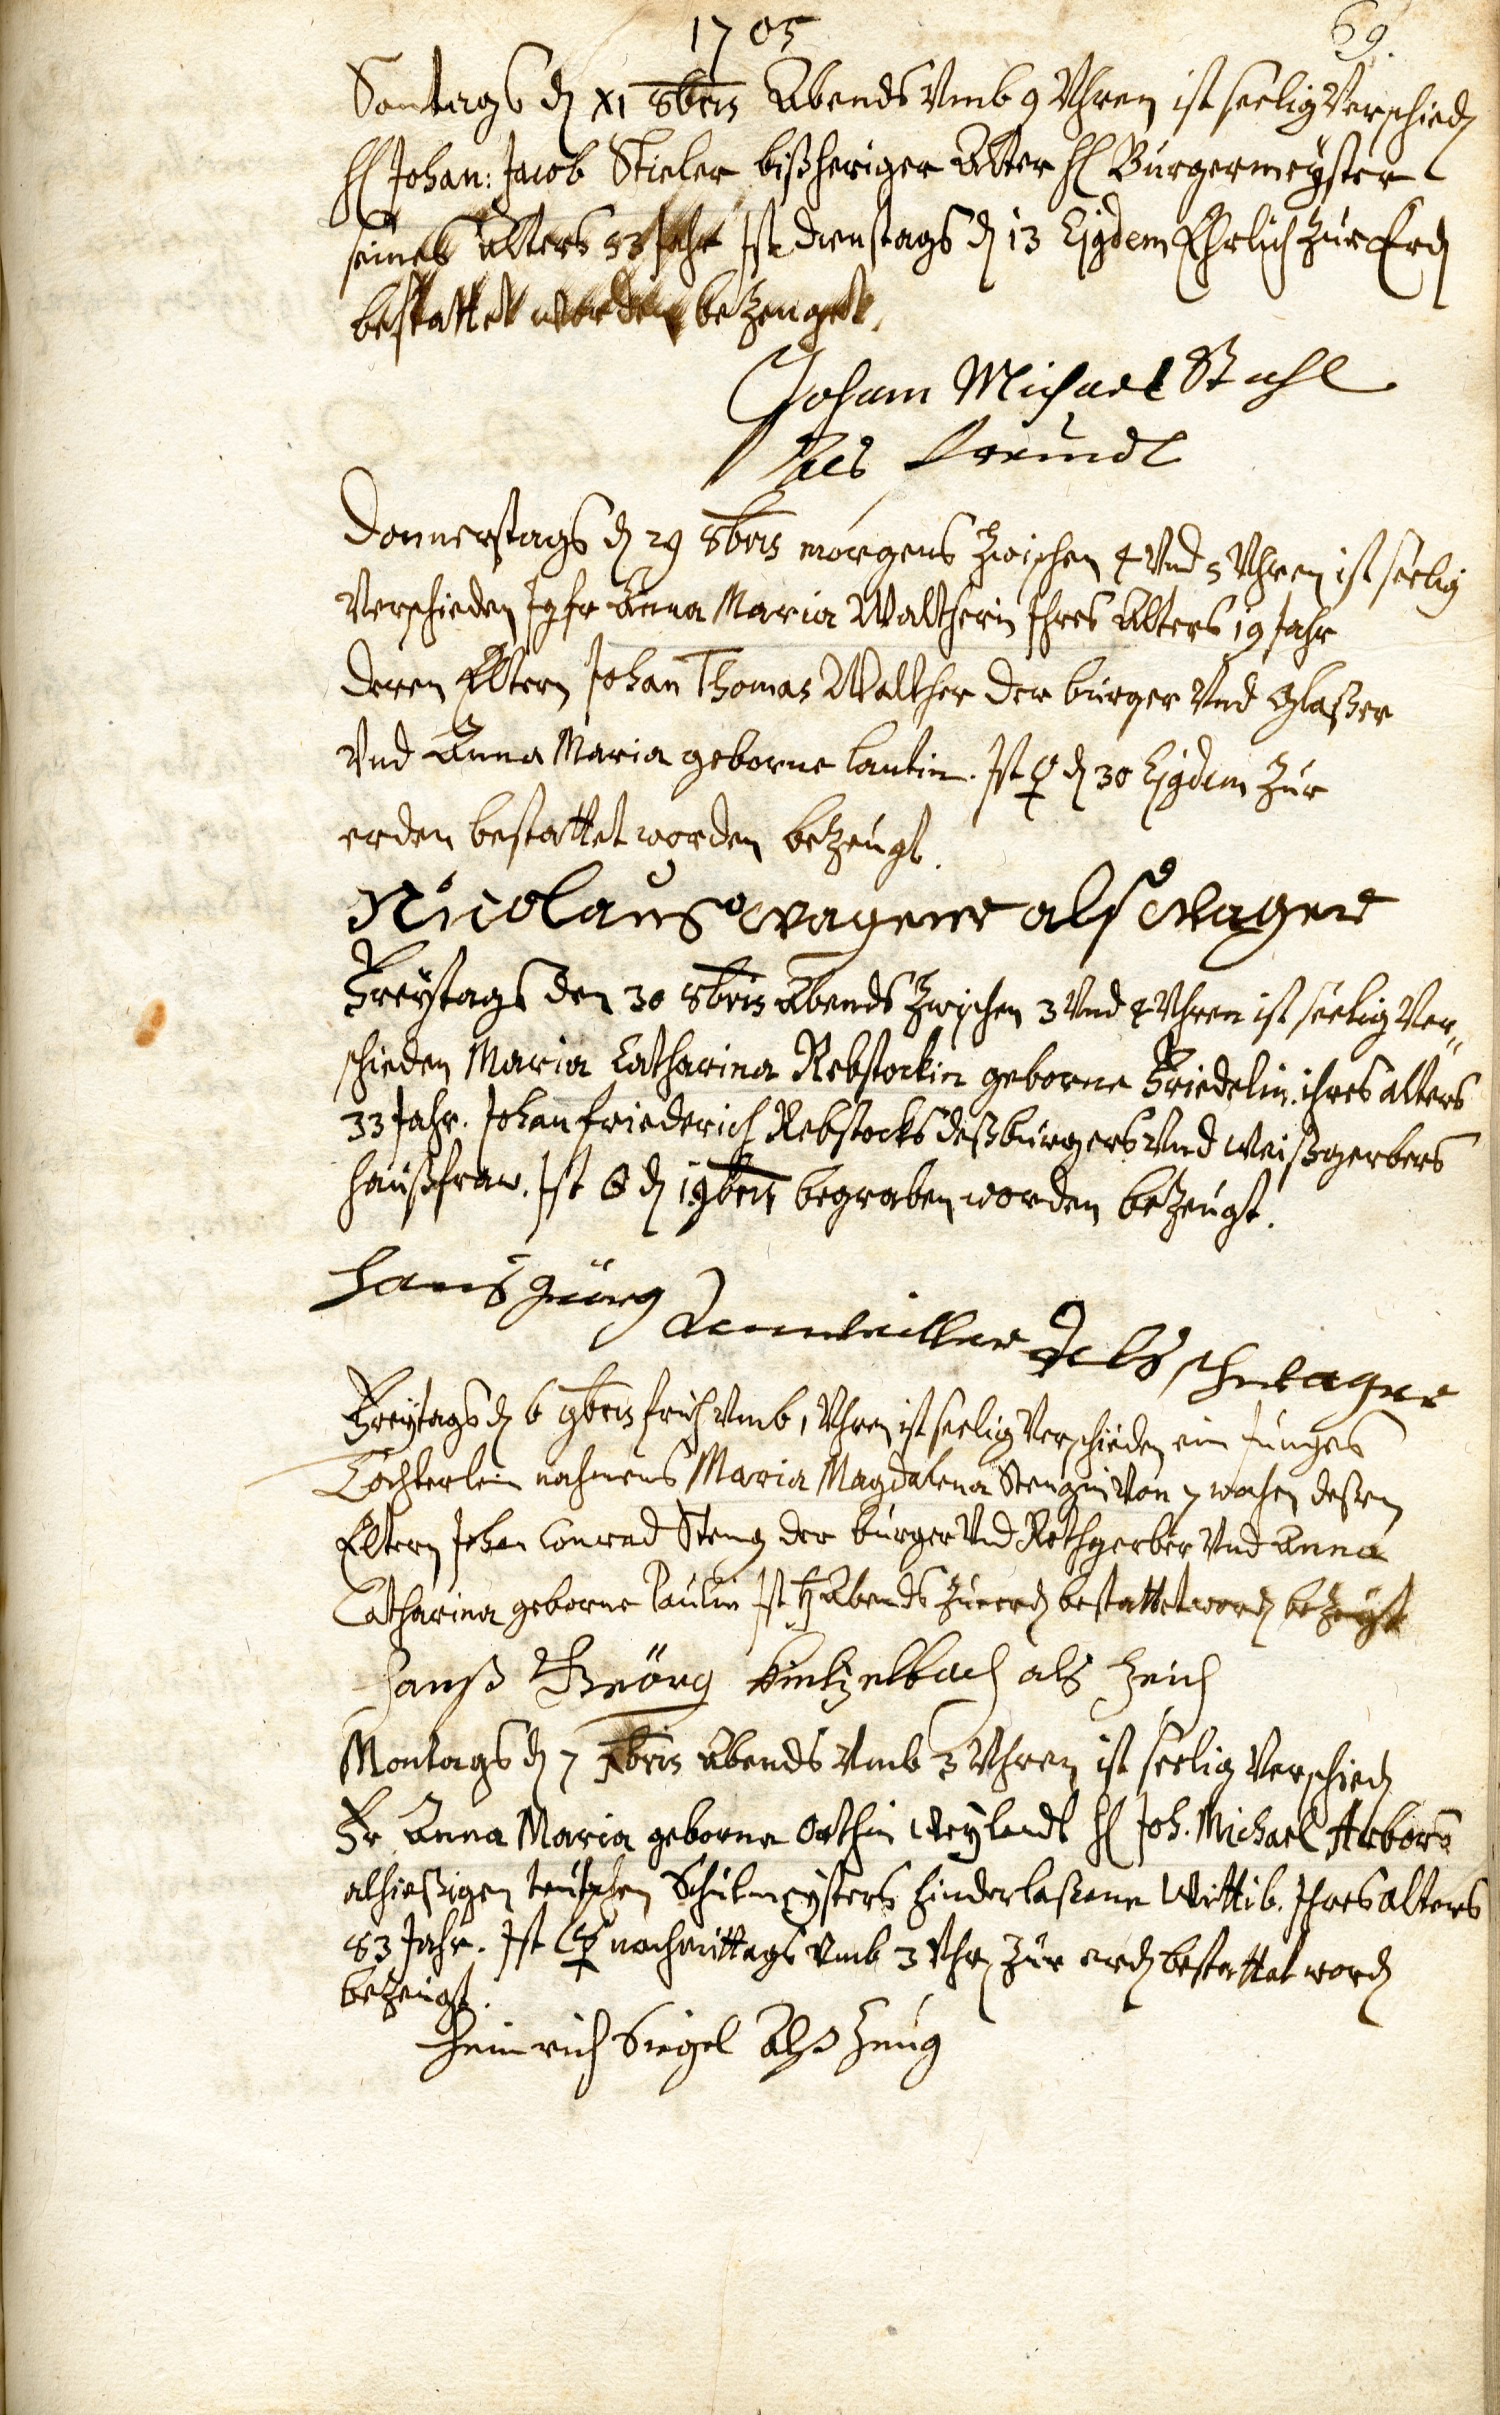 1705
69.
Sontags dẽ XI 8bris Abends Vmb 9 Vhren ist seelig Verschiedẽ
H Johan: Jacob Stieler bißheriger Alter H Burgermeyster
seines Alters 53 Jahr Ist dienstags dẽ 13 Ejgdem Ehrlich zur Erdẽ
bestattet worden bezeuget.
Johann Michael Stahl
Als freundt
Donnerstags dẽ 29 8bris morgens zwischen 4 Vnd 5 Vhren ist seelig
Verschieden Jgfr Anna Maria Waltherin Ihres Alters 19 Jahr
deren Eltern Johan Thomas Walther der burger Vnd Glaßer
Vnd Anna Maria geborne Lautin. Ist ♀ dẽ 30 Ejgdem zur
erden bestattet worden bezeugt.
Nicolaus wagener alß
Freytags den 30 8bris Abends zwischen 3 Vnd 4 Vhren ist seelig Ver„
schieden Maria Catharina Rebstockin geborne Friedelin. ihres alters
33 Jahr. Johan friederich Rebstocks deß burgers Vnd Weißgerbers
haußfraw. Ist dẽ 1 9bris begraben worden bezeugt.
hans Jüörg als schwager
Freytags dẽ 6 9bris früh Vmb 1 Vhren ist seelig Verschieden ein Junges
Töchterlein nahmens Maria Magdalena Stengin Von 7 wochen deßen
Eltern Johan Conrad Steng der burger Vnd Rothgerber Vnd Anna
Catharina geborne Paulin Ist ♄ Abends zur erdẽ bestattet wordẽ bezeugt
Hanß Geörg als Zeich
Montags dẽ 7 Xbris Abends Vmb 3 Vhren ist seelig Verschiedẽ
Fr Anna Maria geborne Orthin Weylandt H Joh. Michael Arbors
alhießigen teutschen Schulmeysters hinderlaßene Wittib. Ihres alters
83 Jahr. Ist nachmittags Vmb 3 Vhr zur erdẽ bestattet wordẽ
bezeugt.
Heinrich Siegel Alß Zeug